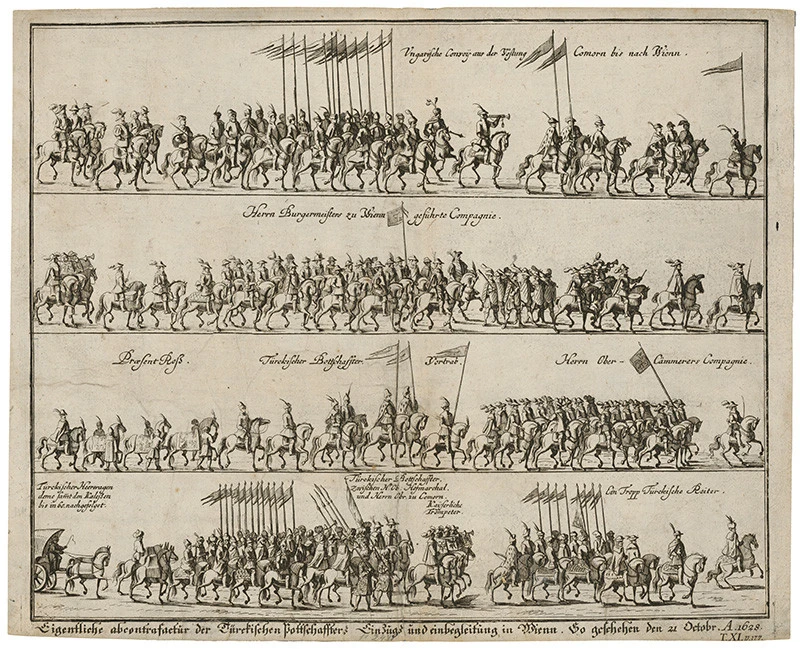 Ungarische Convoy aus der Vestung Comorn bis nach Wienn.
Herrn Burgermeisters zu Wienn geführte Compagnie.
Præsent Roß. Türckischer Bottschaffter. Vortrab. Herrn Ober-Cämmerers Compagnie.
Türckischer Heerwagen
deme samt den Kaleßen
bis in 60. nachgefolget.
Türckischer Bottschaffter.
zwischen H. Ob. Hofmarschal.
und Herrn Obr. zu Comorn.
Kaiserliche
Trompeter
Ein Tropp Türckische Reiter.
Eigentliche abcontrafactur der Türckischen Pottschaffters Einzugs und einbegleitung in Wienn. So geschehen den 21 Octobr. A. 1628.
T. XI.